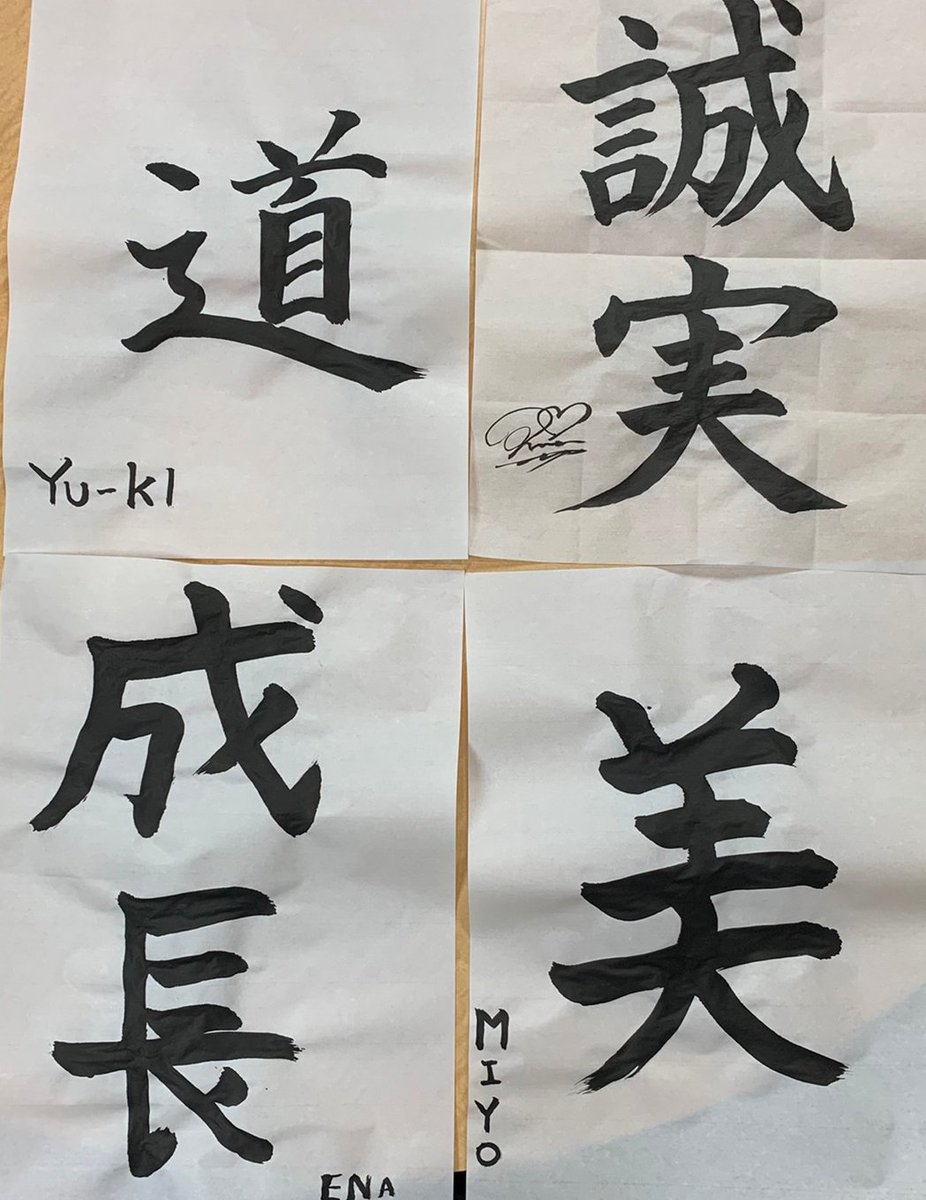 道
Yu-kI
誠
実
成
長
ENA
美
MIYO